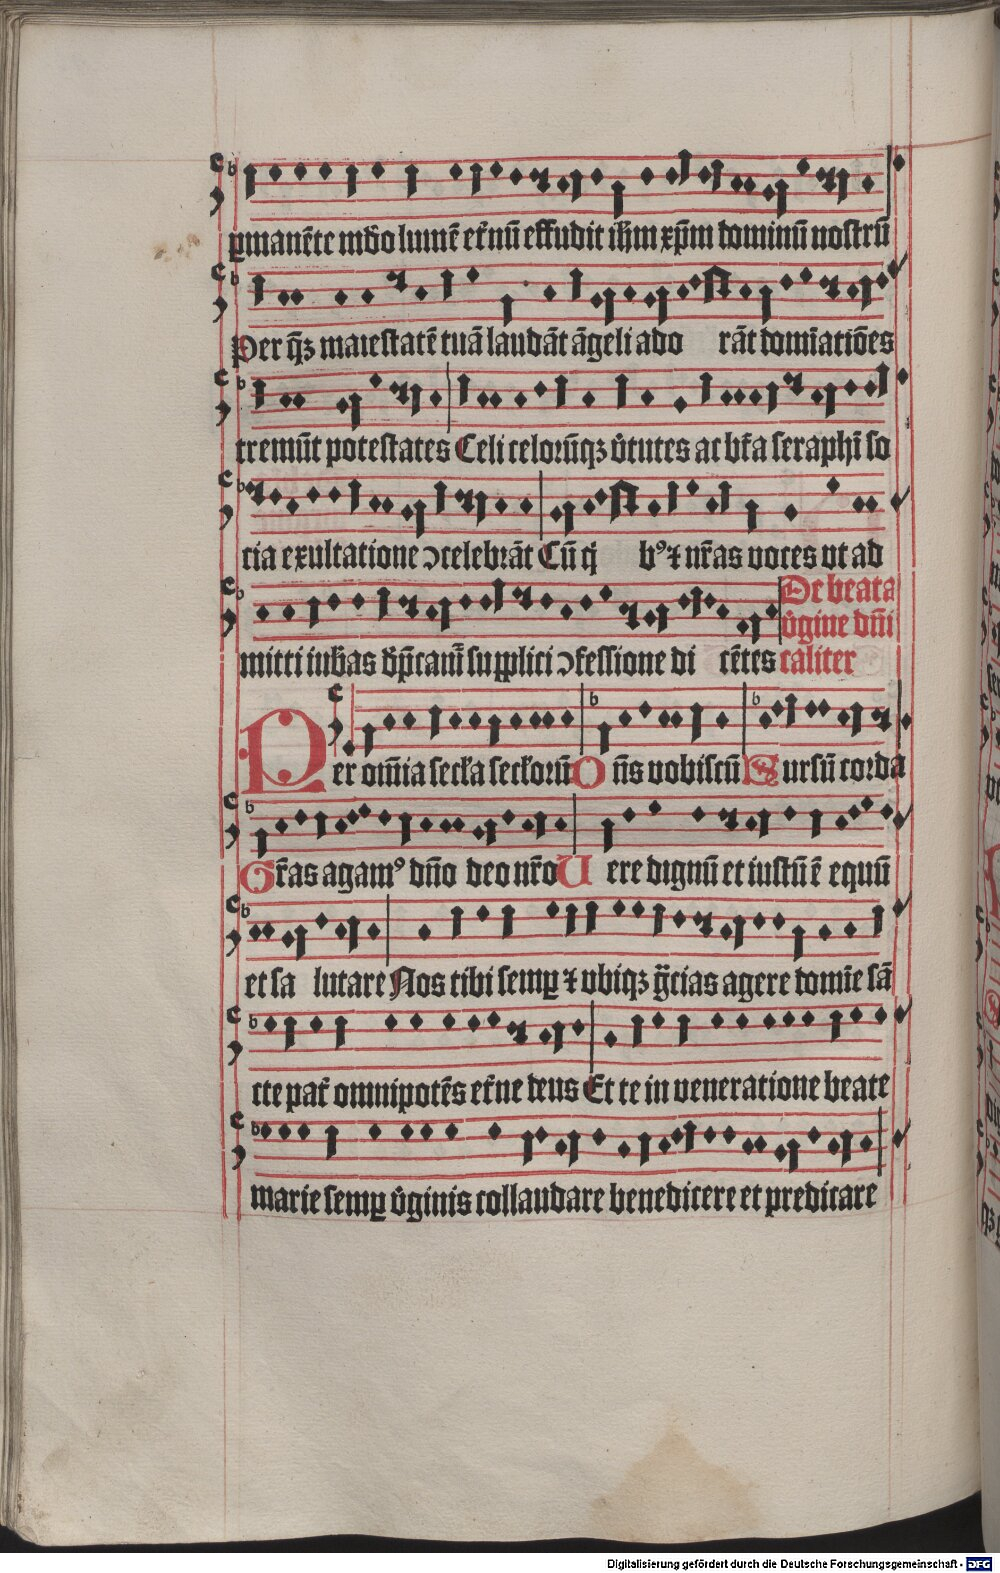 ꝑmanēte mūdo lumē et̄nū effudit ih̄m xp̄m dominū nostrū
Per q̄ꝫ maiestatē tuā laudāt āgeli ado rāt domīatiōes
tremūt potestates Celi celorūqꝫ v̄tutes ac bt̄a seraphī so
cia exultatione ↄcelebrāt Cū q̄ bꝰ ⁊ nr̄as voces vt ad
mitti iubeas dep̄camr̄ supplici ↄfessione di cētes
De beata
v̄gine dn̄i
caliter
Per om̄ia secl̄a secl̄orū Dn̄s vobiscū Sursū corda
Gr̄as agamꝰ dn̄o deo nr̄o Uere dignū et iustū ē equū
et sa lutare Nos tibi semꝑ ⁊ vbiqꝫ gr̄cias agere domīe sā
cte pat̄ omnipotēs et̄ne deus Et te in veneratione beate
marie semꝑ v̄ginis collaudare benedicere et predicare
Digitalisierung gefördert durch die Deutsche Forschungsgemeinschaft - DFG